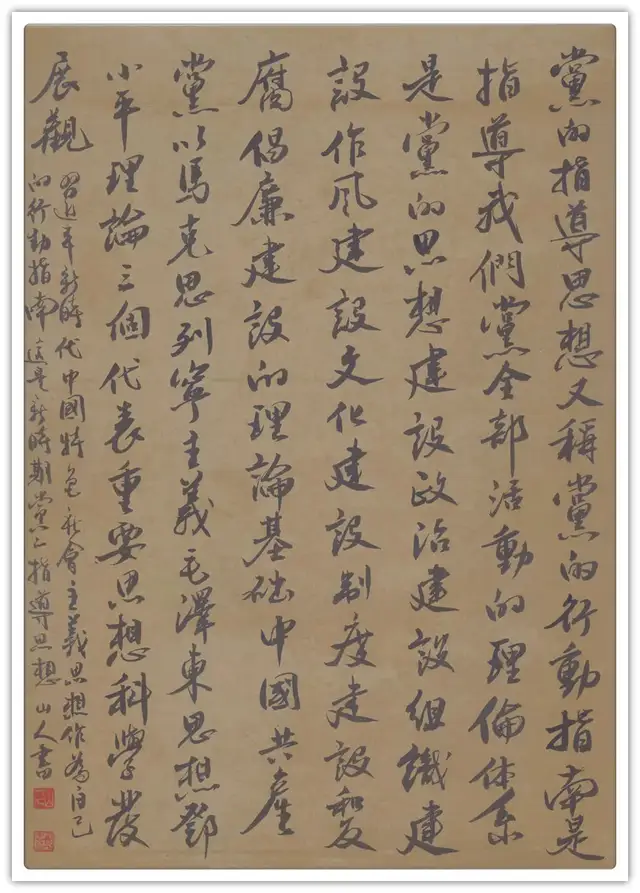 黨的指導思想又稱黨的行動指南是
指導我們黨全部活動的理倫体系
是黨的思想建設政治建設組織建
設作风建設文化建設制度建設和反
腐倡廉建設的理論基础中國共產
黨以馬克思列寧主義毛澤東思想鄧
小平理論三個代表重要思想科學發
展觀
習近平新時代中國特色社會主義思想作為自己
的行動指南這是新時期黨的指導思想 山人書